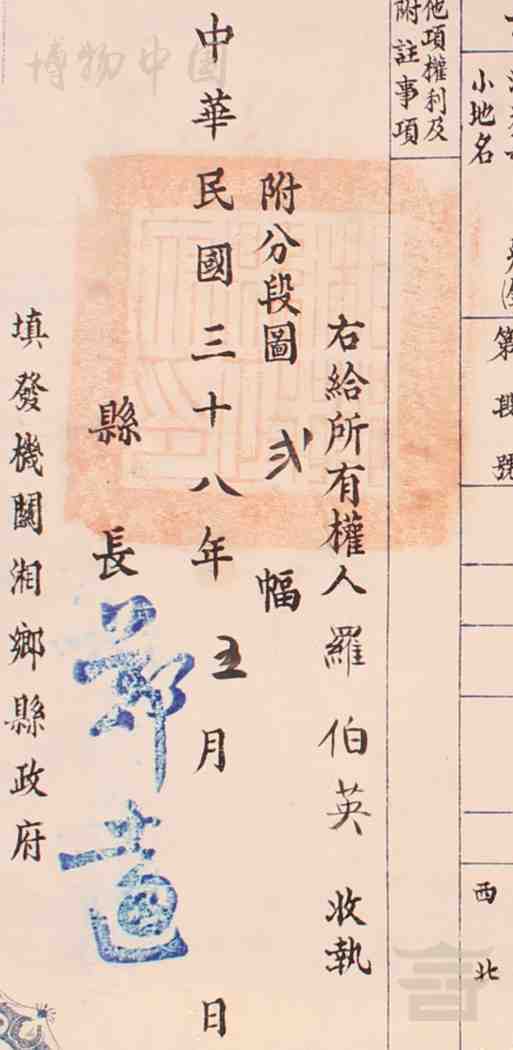 小地名
第 段 號
西
北
他項權利及
附註事項
右給所有權人羅伯英收執
附分段圖 弍 幅
中華民國三十八年五月 日
縣長
填發機關湘鄉縣政府
博物中国